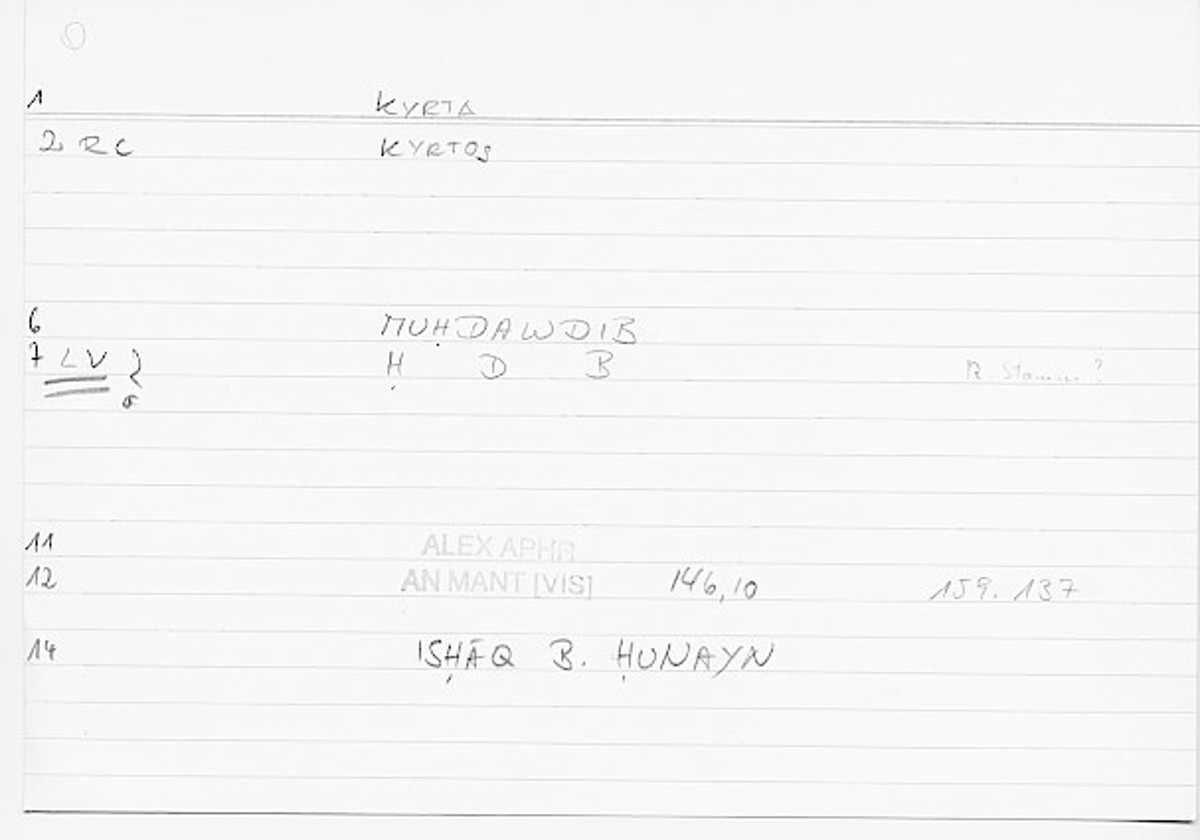 1 KYRTA
2 RC KYRTOS
6 MUḤDAWDIB
7 LV ? Ḥ D B 12. Stamm?
11 ALEX APHR
12 AN MANT [VIS] 146,10 159. 137
14 ISḤĀQ B. ḤUNAYN